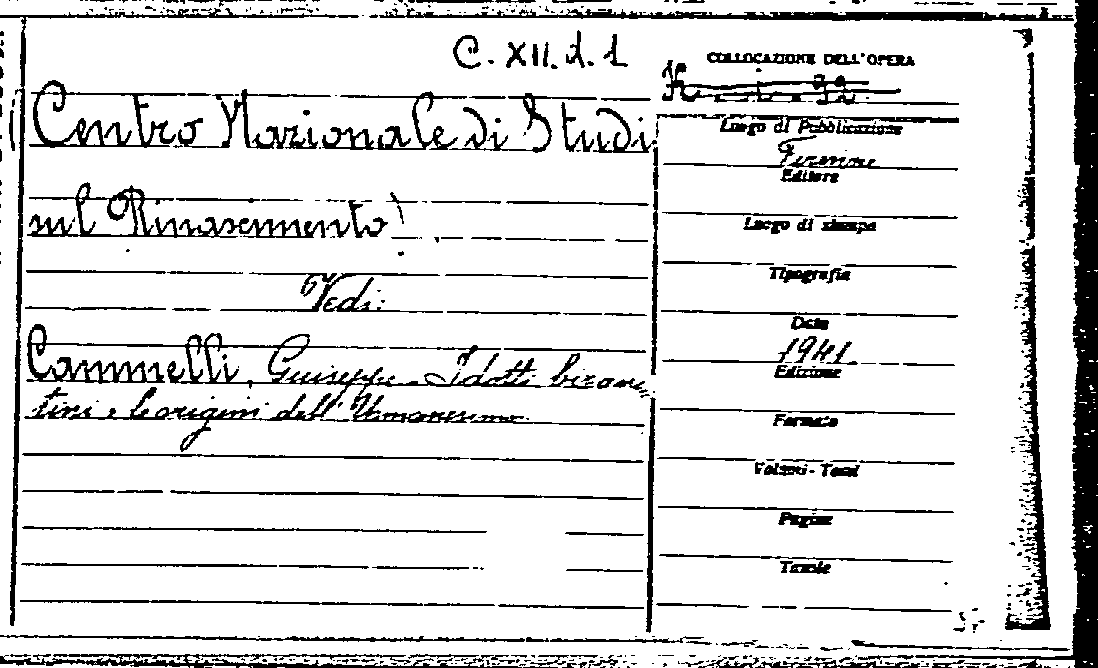 C. XII. d. 1
COLLOCAZIONE DELL'OPERA
Centro Nazionale di Studi
sul Rinascimento
Vedi:
Cammelli, Giuseppe - I dotti bizan
tini e le origini dell'Umanesimo
Luogo di Pubblicazione
Firenze
Editore
Luogo di stampa
Tipografia
Data
1941
Edizione
Formato
Volumi - Tomi
Pagine
Tavole